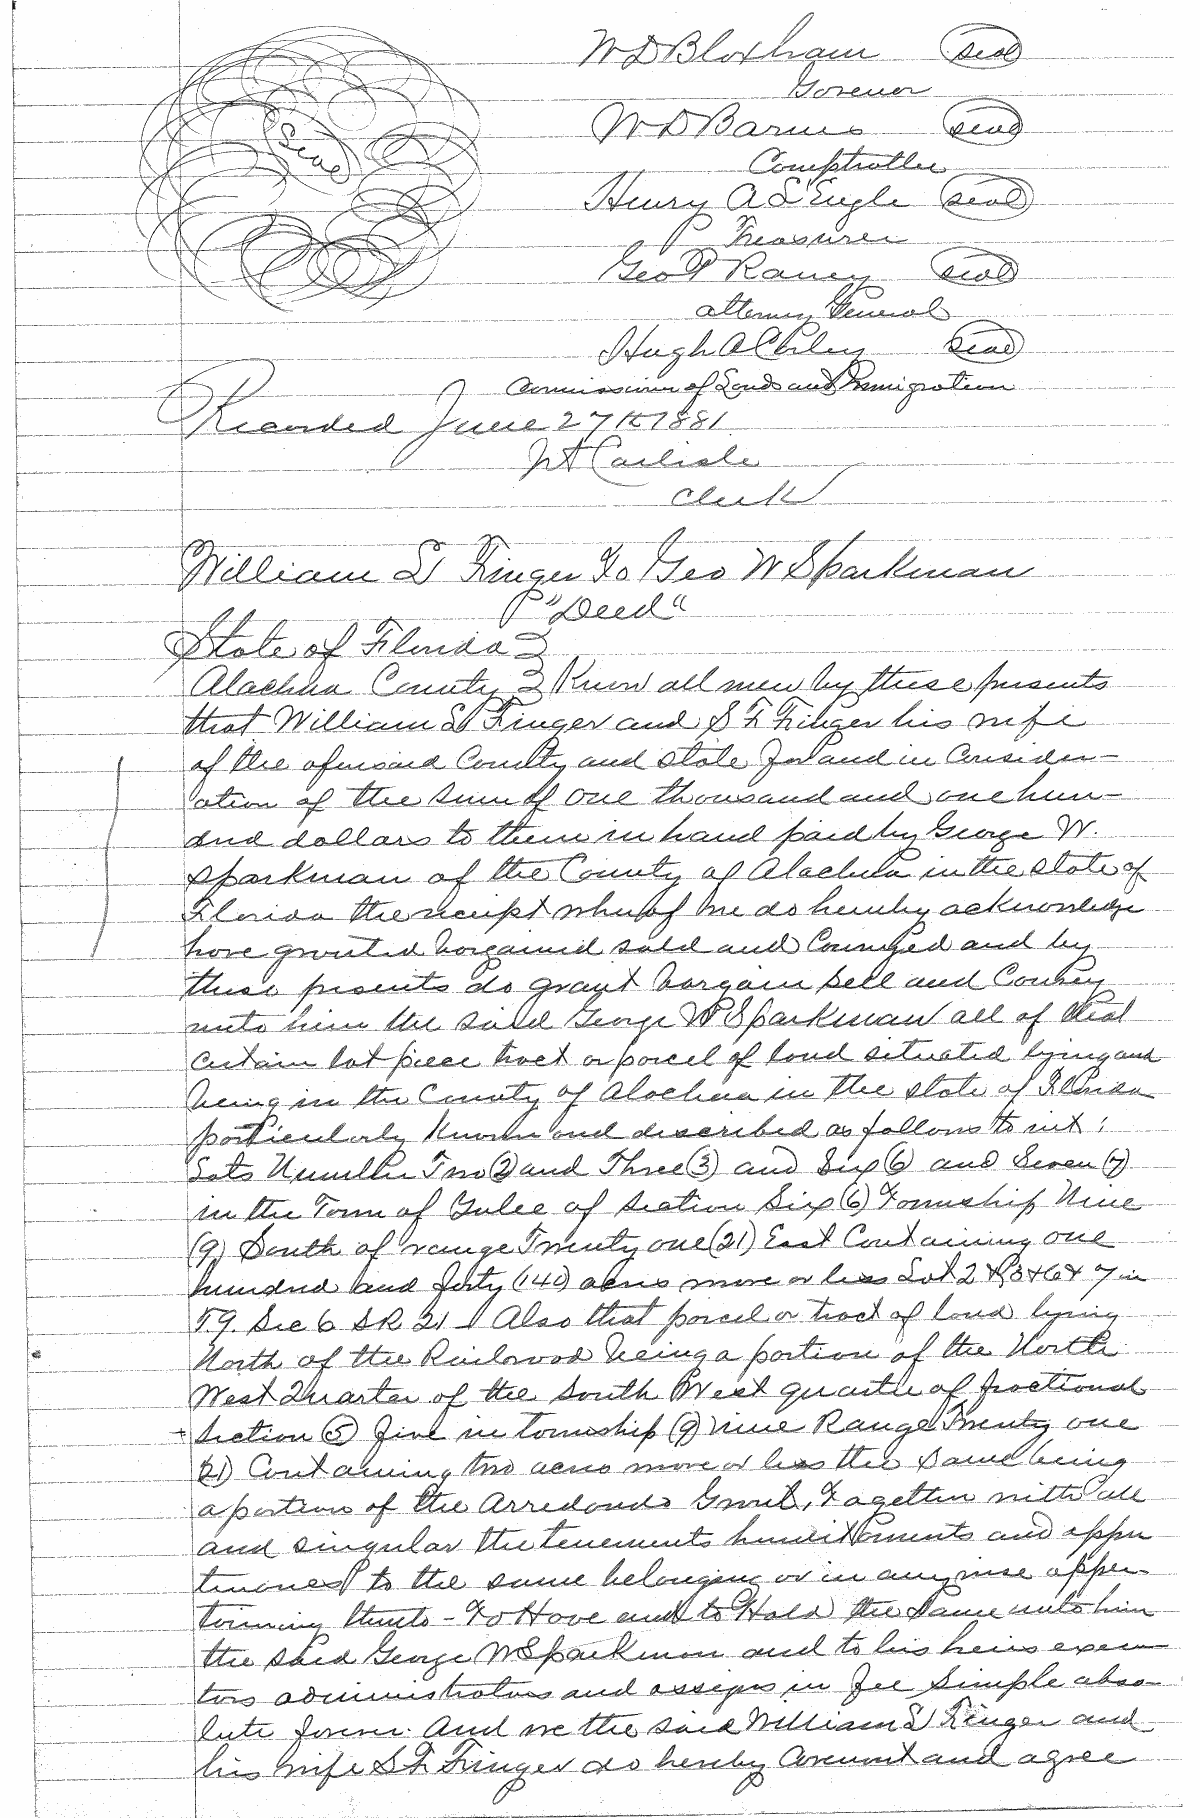 W D Bloxham seal
Governor
Seal
W D Barnes seal
Comptroller
Henry A L'Engle seal
Treasurer
Geo P Raney seal
attorney General
Hugh A Corley seal
Commissioner of Lands and Immigration
Recorded June 27th 1881
Carlisle
Clerk
William L Finger To Geo W Sparkman
"Deed"
State of Florida
Alachua County Know all men by these presents
that William L Finger and S F Finger his wife
of the aforesaid County and state for and in Consider-
ation of the sum of One thousand and one hun-
dred dollars to them in hand paid by George W.
Sparkman of the County of Alachua in the state of
Florida the receipt wherof we do hereby acknowledge
have granted bargained sold and Conveyed and by
these presents do grant bargain sell and Convey
unto him the said George W Sparkman all of that
certain lot piece tract or parcel of land situated lying and
being in the County of Alachua in the state of Florida
particularly Known and described as follows to wit :
Lots Number Two (2) and Three (3) and Six (6) and Seven (7)
in the Town of Gulee of Section Six (6) Township Nine
(9) South of range Twenty one (21) East Containing one
hundred and forty (140) acres more or less Lot 2 & 3 & 6 & 7 in
T.9. Sec 6 S R 21 Also that parcel or tract of land lying
North of the Railroad being a portion of the North
West Quarter of the South West quarter of fractional
+ Section (5) five in township (9) nine Range Twenty one
21) Containing two acres more or less the same being
a portion of the Arredondo Grant, Together with all
and singular the tenements hereditaments and appur
tenances to the same belonging or in any wise apper-
taining thereto - To Have and to Hold the same unto him
the said George W Sparkman and to his heirs execu-
tors administrators and assigns in fee simple abso-
lute forever. And we the said William L Finger and
his wife S F Finger do hereby Covenant and agree